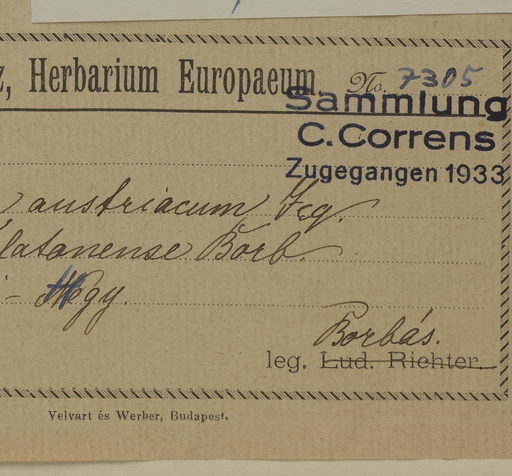 z, Herbarium Europaeum No. 7305
Sammlung
C. Correns
Zugegangen 1933
austriacum Jcq.
latonense Borb.
- Hegy.
Borbás.
leg. Lud. Richter
Velvart és Werber, Budapest.